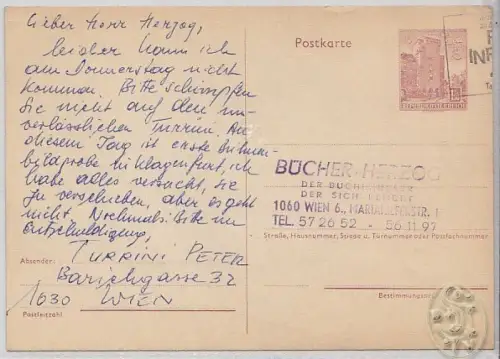 Lieber Herr Herzog,
leider kann ich
am Donnerstag nicht
kommen. Bitte schimpfen
Sie nicht auf den un-
verlässlichen Turrini. An
diesem Tag ist erste Bühnen-
bildprobe in Klagenfurt, ich
habe alles versucht, sie
zu verschieben, aber es geht
nicht. Nochmals: Bitte um
Entschuldigung,
Absender: TURRINI PETER
Barichgasse 32
1030 WIEN
Postleitzahl
Postkarte
REPUBLIK ÖSTERREICH
BÜCHER-HERZOG
DER
DER SICH
1060 WIEN 6., MARIAHILFERSTR. 1
TEL. 57 26 52 - 56 11 97
Straße, Hausnummer, Stiege u. Türnummer oder Postfachnummer